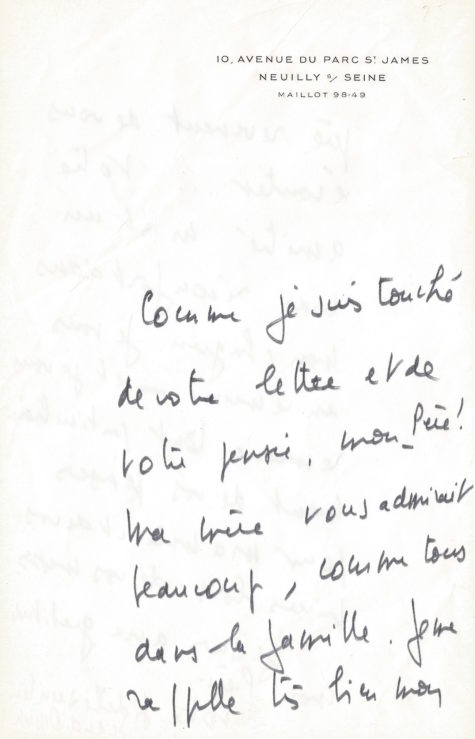 10, AVENUE DU PARC ST JAMES
NEUILLY S/ SEINE
MAILLOT 98-49
Comme je suis touché
de votre lettre et de
votre pensée, mon Père !
Ma mère vous admirait
beaucoup, comme tous
dans la famille. Je me
rappelle très bien mon